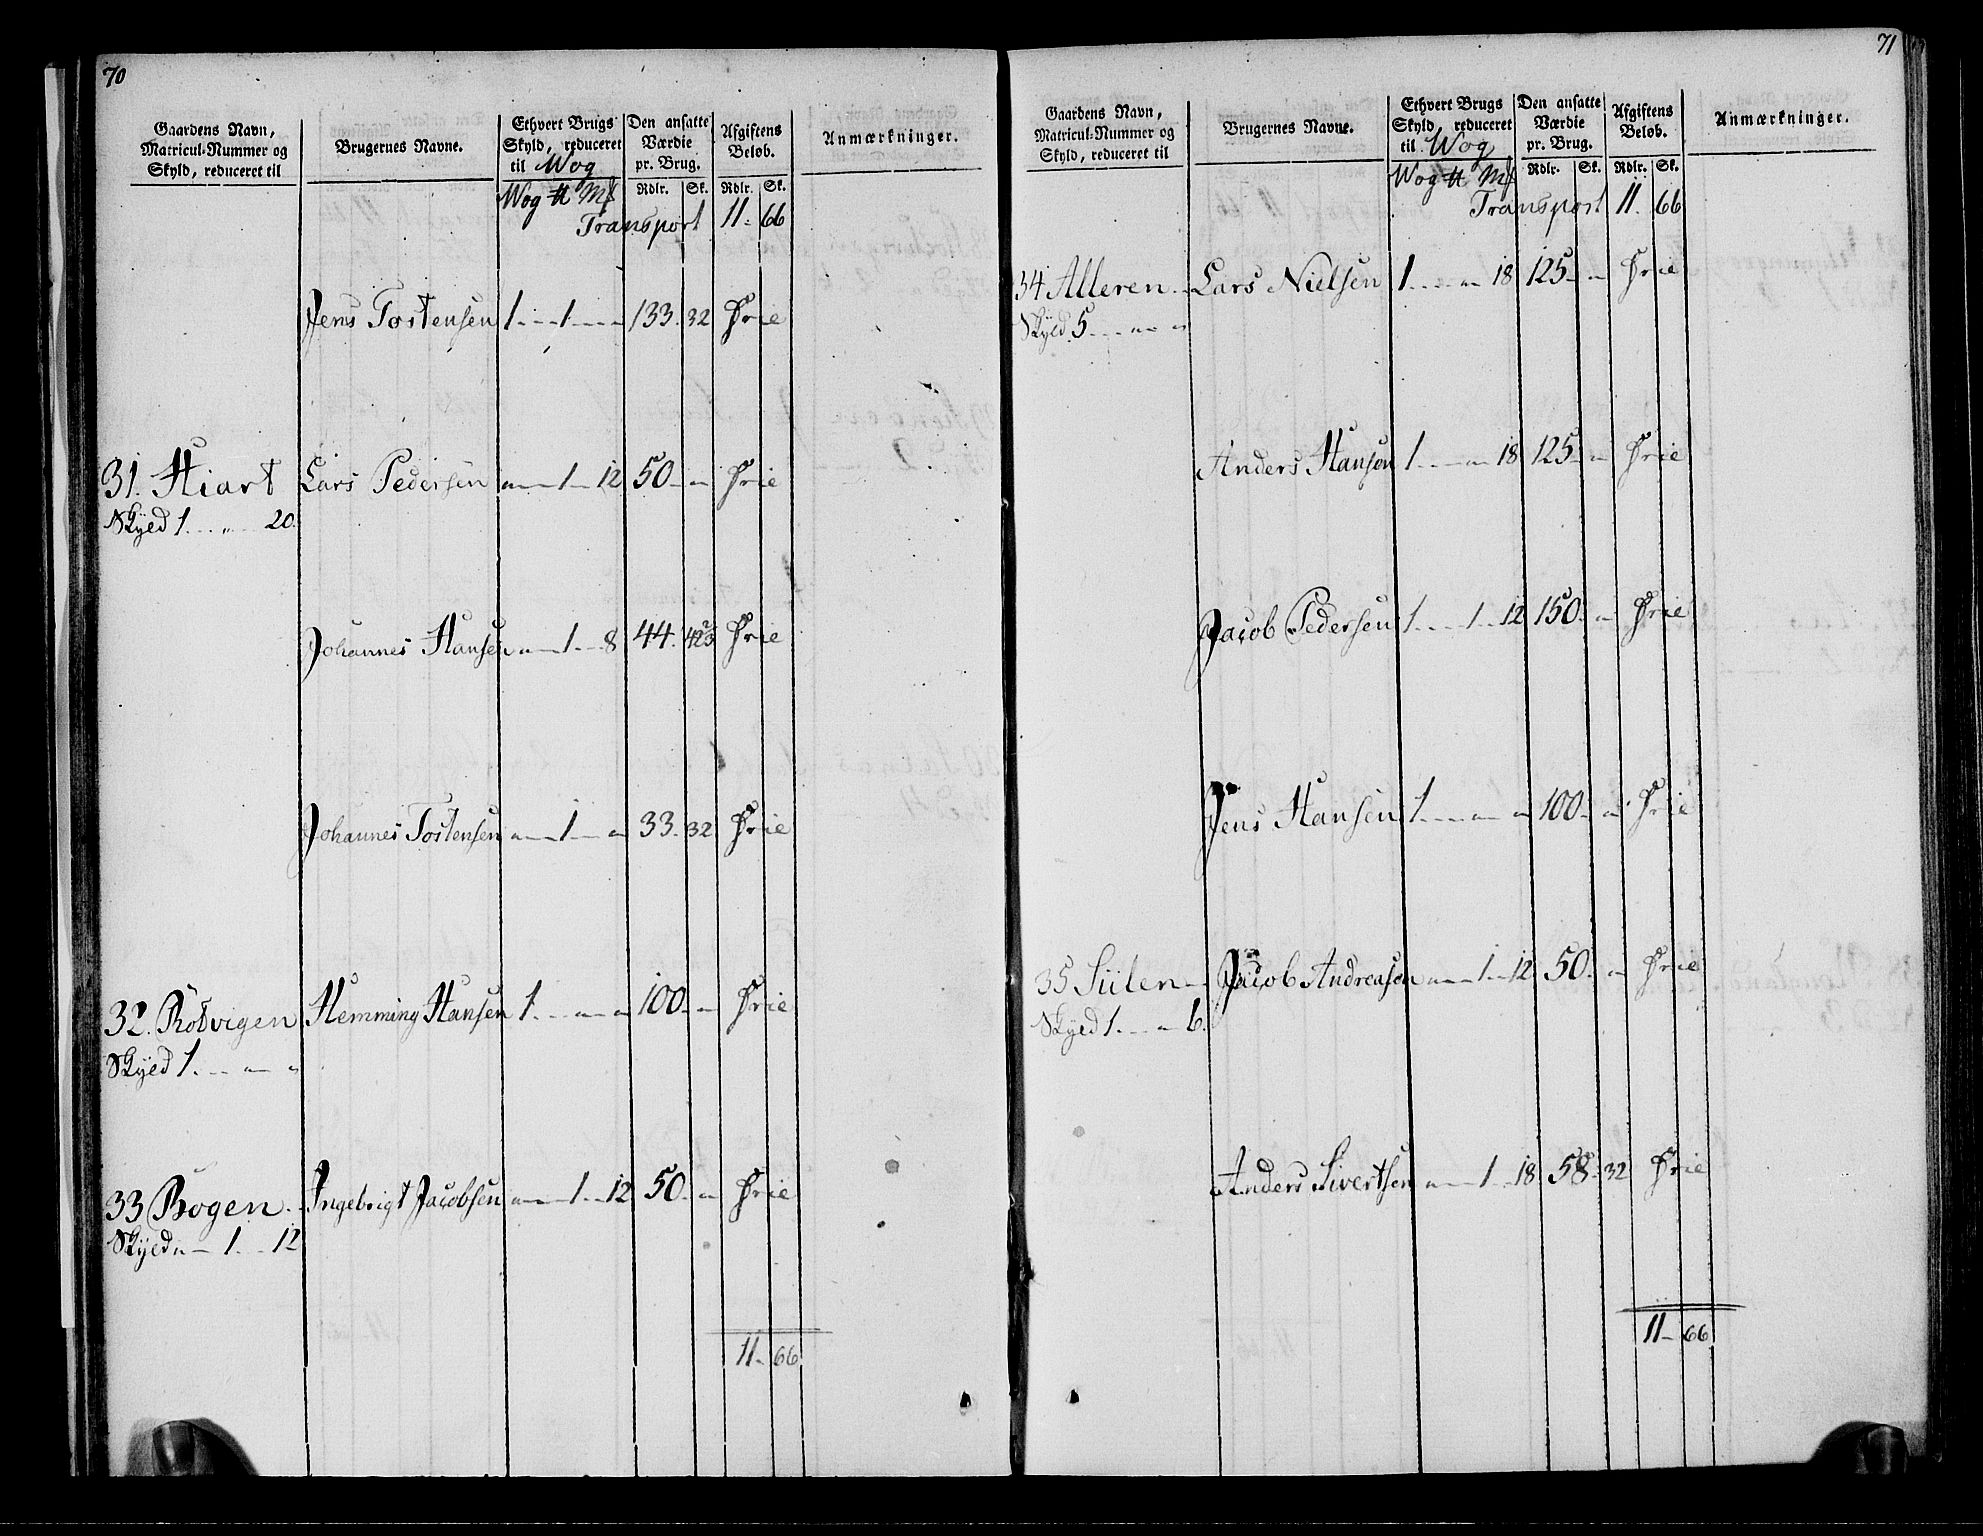 70
Gaardens Navn, Matricul-Nummer og Skyld, reduceret til
Brugernes Navne.
Ethvert Brugs Skyld, reduceret til Wog
Den ansatte Værdie pr. Brug.
Afgiftens Beløb.
Anmærkninger.
Wog ℔ Mk Rdlr. Sk. Rdlr. Sk.
Transport 11. 66
Jens Tostensen 1 - - 1 - - - 133. 32 Frie
31. Hiart Lars Pedersen „ - 1 - 12 50 - „ Frie
Skyld 1 - - „ - 20.
Johannes Hansen „ - 1 - 8 44. Frie
Johannes Tostensen „ - 1 - „ 33. 32 Frie
32. Rodvigen Hemming Hansen 1 - - „ - „ 100 - „ Frie
Skyld 1 - - „ - „
33 Bogen - Ingebrigt Jacobsen „ - 1 - 12 50 - „ Frie
Skyld „ - 1 - 12
11 - 66
71
Gaardens Navn, Matricul-Nummer og Skyld, reduceret til
Brugernes Navne.
Ethvert Brugs Skyld, reduceret til Wog
Den ansatte Værdie pr. Brug.
Afgiftens Beløb.
Anmærkninger.
Wog ℔ Mk Rdlr. Sk. Rdlr. Sk.
Transport 11. 66
34 Alleren - Lars Nielsen 1 - - „ - 18 125 - „ Frie
Skyld 5 - - „ - „
Anders Hansen 1 - - „ - 18 125 - „ Frie
Jacob Pedersen 1 - - 1 - 12 150 - „ Frie
Jens Hansen 1 - - „ - „ 100 - „ Frie
35 Siilen - Jacob Andreasen „ - 1 - 12 50 - „ Frie
Skyld 1 - - „ - 6.
Anders Sivertsen „ - 1 - 18 58 - 32 Frie
11 - 66